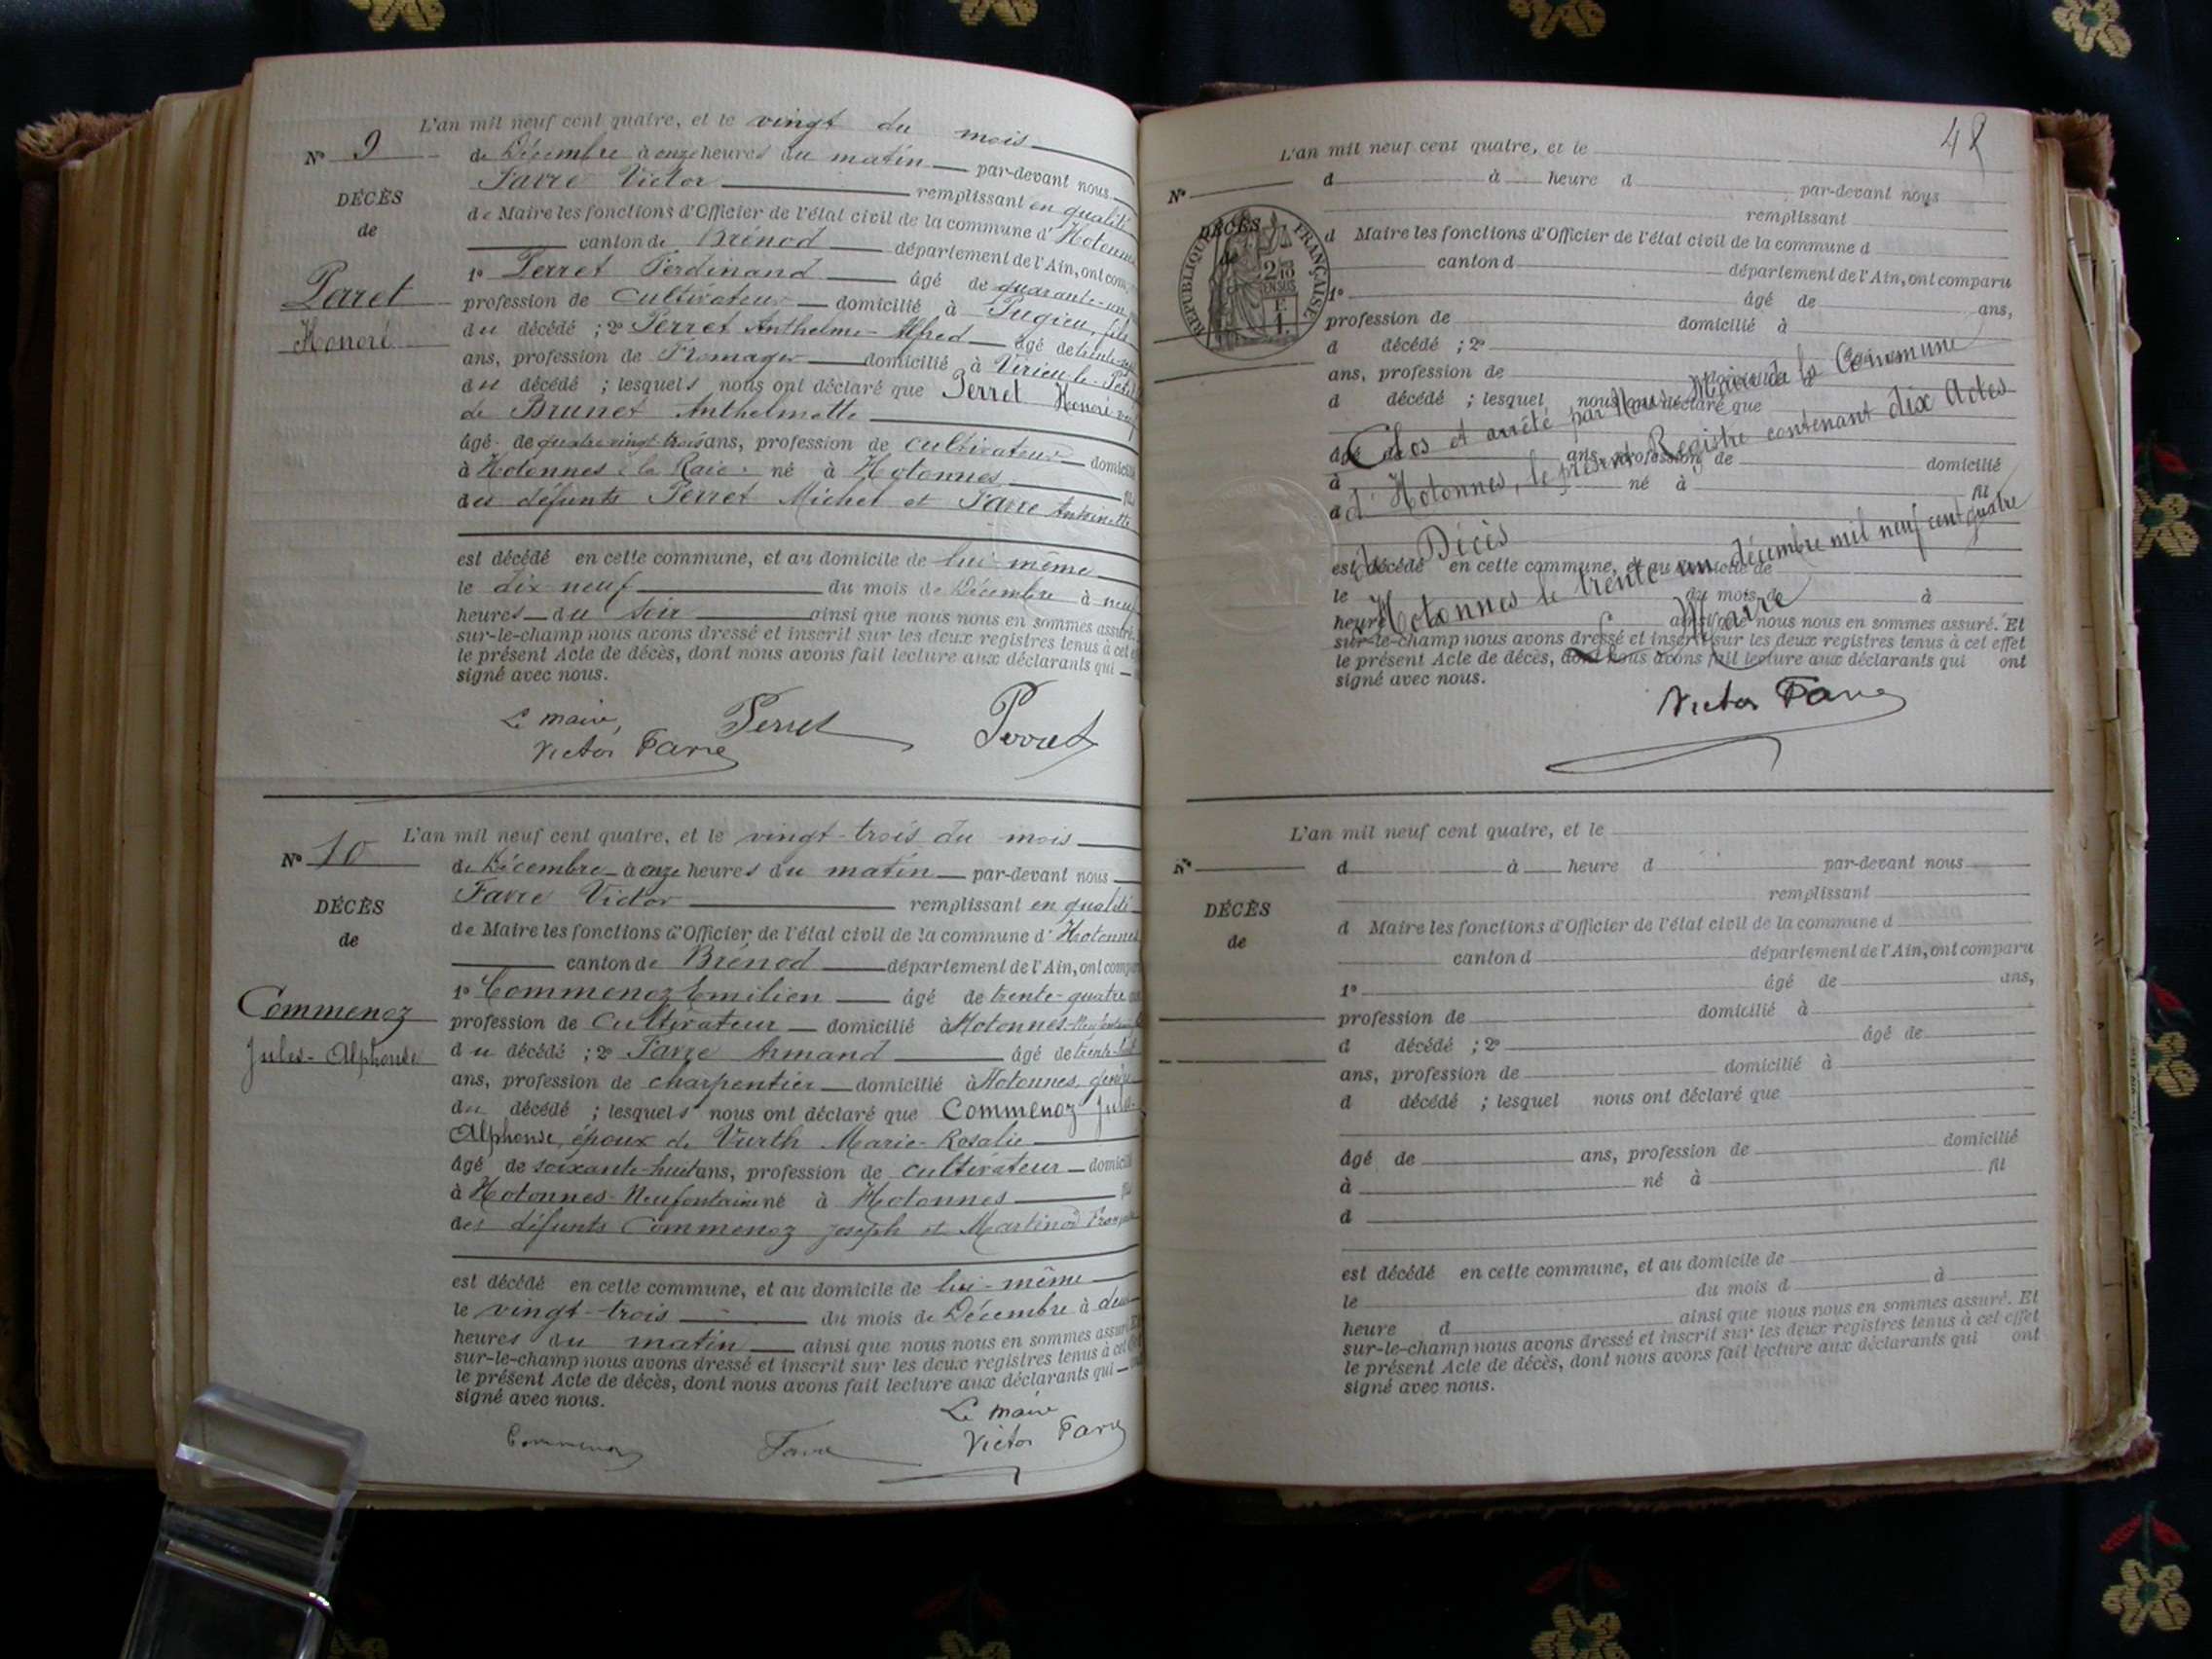 L'an mil neuf cent quatre, et le vingt du mois
N° 9
de Décembre à onze heures du matin par-devant nous
Favre Victor remplissant en qualité
DÉCÈS
de Maire les fonctions d'Officier de l'état civil de la commune d'Hotonnes
de
canton de Brénod département de l'Ain, ont com
Perret
Honoré
1° Perret Ferdinand âgé de quarante-un
profession de cultivateur domicilié à Pugieu, fils
du décédé ; 2° Perret Anthelme-Alfred âgé de
ans, profession de Fromager domicilié à Virieu-le-Petit
du décédé ; lesquels nous ont déclaré que Perret Honoré
de Brunet Anthelmette
âgé de quatre vingt trois ans, profession de cultivateur domicilié
à Hotonnes né à Hotonnes fils
des défunts Perret Michel et Favre Antoinette
est décédé en cette commune, et au domicile de lui-même
le dix neuf du mois de Décembre à neuf
heures du soir ainsi que nous nous en sommes assuré.
sur-le-champ nous avons dressé et inscrit sur les deux registres tenus à cet
le présent Acte de décès, dont nous avons fait lecture aux déclarants qui
signé avec nous.
Le maire, Perret Perret
Victor Favre
L'an mil neuf cent quatre, et le vingt-trois du mois
N° 10
de Décembre à onze heures du matin par-devant nous
Favre Victor remplissant en qualité
DÉCÈS
de Maire les fonctions d'Officier de l'état civil de la commune d'Hotonnes
de
canton de Brénod département de l'Ain, ont comparu
Commenoz
Jules-Alphonse
1° Commenoz Emilien âgé de trente-quatre
profession de cultivateur domicilié à Hotonnes
du décédé ; 2° Favre Armand âgé de trente-
ans, profession de charpentier domicilié à Hotonnes, gendre
du décédé ; lesquels nous ont déclaré que Commenoz Jules-
Alphonse, époux de Vurth Marie-Rosalie
âgé de soixante-huit ans, profession de cultivateur domicilié
à Hotonnes-Neufontaine né à Hotonnes fils
des défunts Commenoz Joseph et Martinod
est décédé en cette commune, et au domicile de lui-même
le vingt-trois du mois de Décembre à deux
heures du matin ainsi que nous nous en sommes assuré.
sur-le-champ nous avons dressé et inscrit sur les deux registres tenus à cet
le présent Acte de décès, dont nous avons fait lecture aux déclarants qui
signé avec nous.
Le maire
Commenoz Favre Victor Favre
48
L'an mil neuf cent quatre, et le
N°
d à heure d par-devant nous
remplissant
DÉCÈS
de
RÉPUBLIQUE FRANÇAISE
d Maire les fonctions d'Officier de l'état civil de la commune d
canton d département de l'Ain, ont comparu
1° âgé de ans,
profession de domicilié à
d décédé ; 2°
ans, profession de domicilié à
d décédé ; lesquel nous ont déclaré que
âgé de ans, profession de domicilié
à né à fil
d
est décédé en cette commune, et au domicile de
le du mois de à
heure ainsi que nous nous en sommes assuré. Et
sur-le-champ nous avons dressé et inscrit sur les deux registres tenus à cet effet
le présent Acte de décès, dont nous avons fait lecture aux déclarants qui ont
signé avec nous.
Clos et arrêté par Nous, Maire de la Commune
d'Hotonnes, le présent Registre contenant dix Actes
de Décès
Hotonnes le trente-un décembre mil neuf cent quatre
Le Maire
Victor Favre
L'an mil neuf cent quatre, et le
N°
d à heure d par-devant nous
remplissant
DÉCÈS
d Maire les fonctions d'Officier de l'état civil de la commune d
de
canton d département de l'Ain, ont comparu
1° âgé de ans,
profession de domicilié à
d décédé ; 2° âgé de
ans, profession de domicilié à
d décédé ; lesquel nous ont déclaré que
âgé de ans, profession de domicilié
à né à fil
d
est décédé en cette commune, et au domicile de
le du mois d à
heure d ainsi que nous nous en sommes assuré. Et
sur-le-champ nous avons dressé et inscrit sur les deux registres tenus à cet effet
le présent Acte de décès, dont nous avons fait lecture aux déclarants qui ont
signé avec nous.